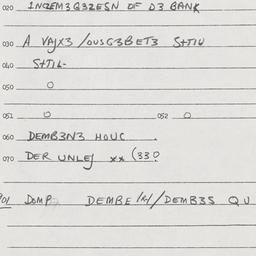 020 1NQEM3G3ZESN OF D3 BANK
030 A VAJX3 /OUSG3BET3 S+TIU
040 S+TIL-
050 O
051 O 052 O
060 DEMB3N3 HOUC .
070 DER UNLEJ xx (33?
901 DOMP DEMBE /DEMB3S QU